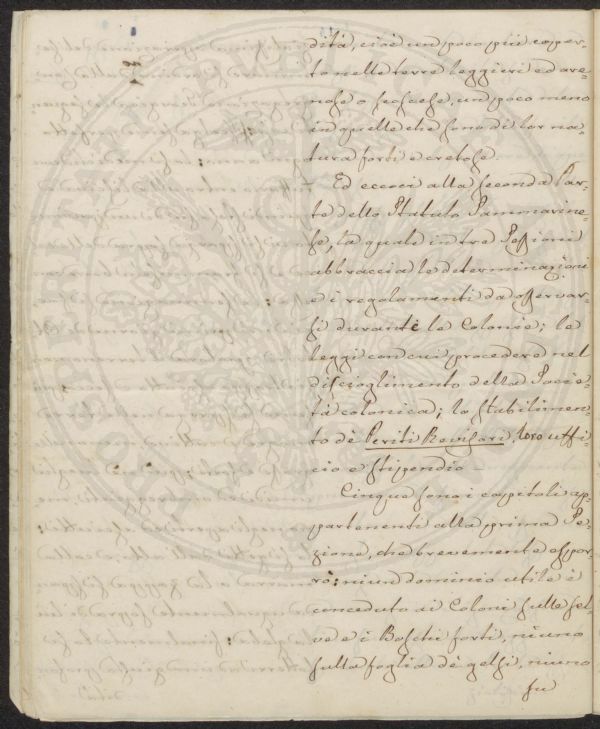 dità, cioè un poco più coper-
to nelle terre leggieri ed are-
nose o scoscese, un poco meno
in quelle che sono di lor na-
tura forti e cretose.
Ed eccoci alla seconda Par-
te dello Statuto Sammarine-
se, la quale in tre Sezioni
abbraccia le determinazioni
e i regolamenti da osservar-
si durante le Colonie; le
leggi con cui procedere nel
discioglimento della Socie-
tà colonica; lo stabilimen-
to de Periti Revisori, loro uffi-
cio e stipendio
Cinque sono i capitoli ap-
partenenti alla prima Se-
zione, che brevemente espor-
rò: niun dominio utile è
conceduto ai Coloni sulle sel-
ve e i Boschi forti, niuno
sulla foglia dè gelsi, niuno
su